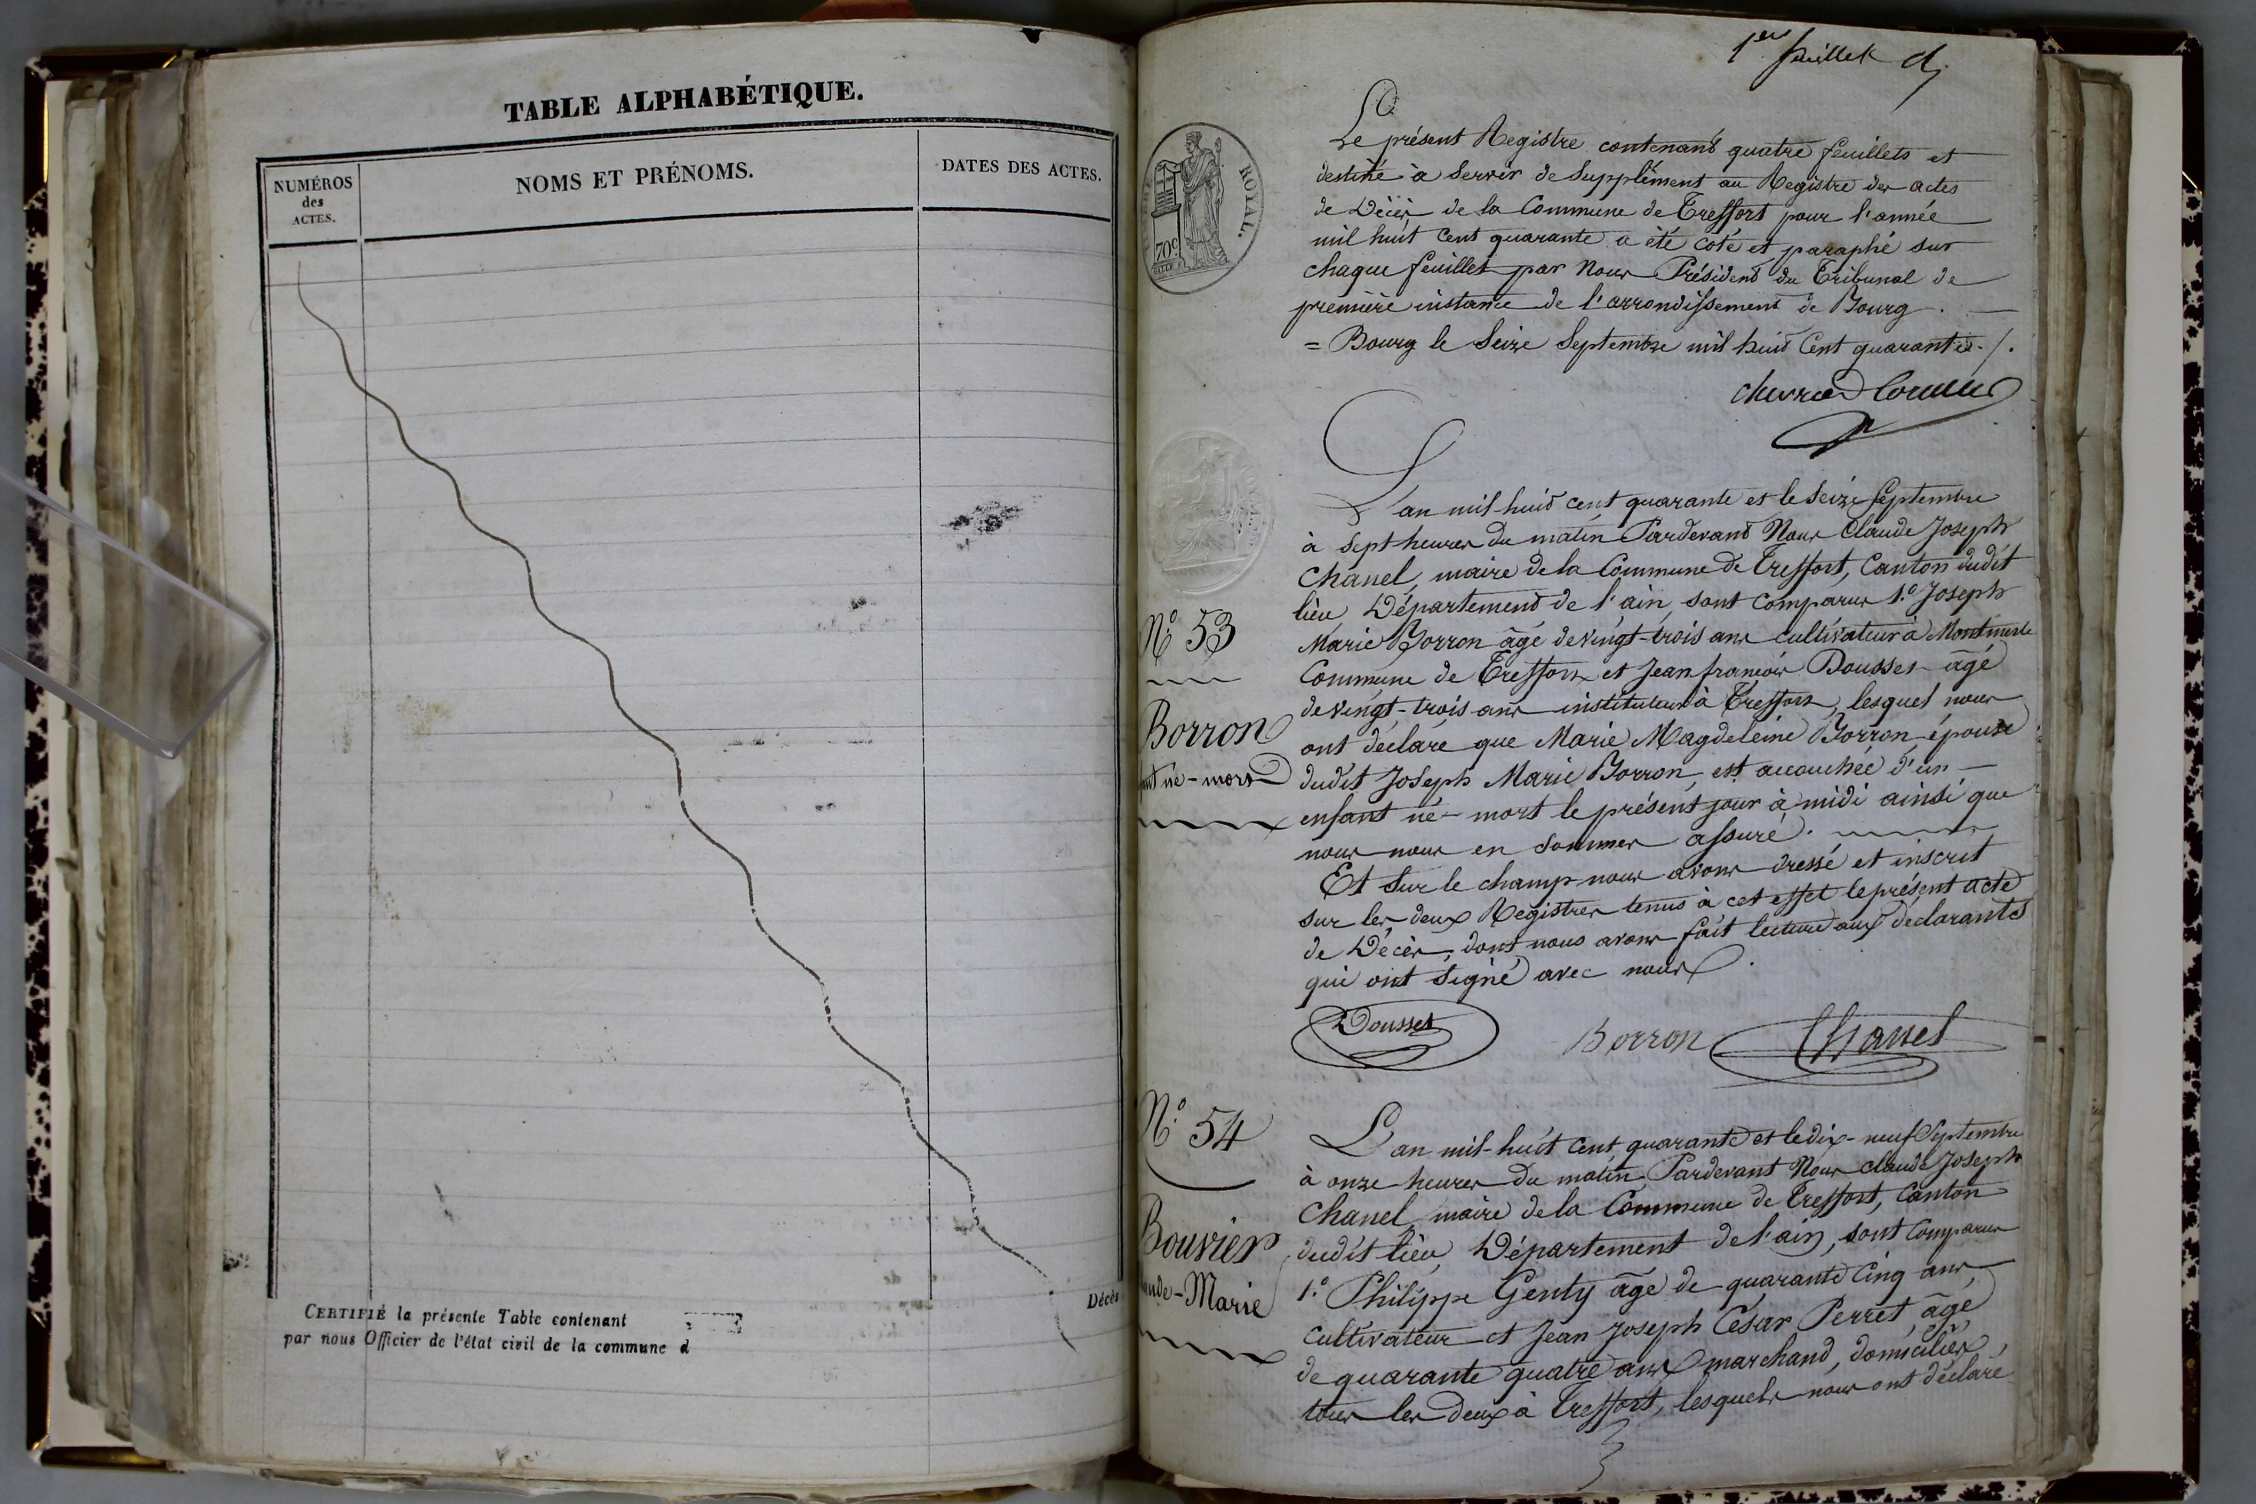 TABLE ALPHABÉTIQUE.
NUMÉROS
des
ACTES.
NOMS ET PRÉNOMS.
DATES DES ACTES.
Décès
CERTIFIÉ la présente Table contenant
par nous Officier de l'état civil de la commune d
1er feuillet
ROYAL.
70c
Le présent Registre contenant quatre feuillets et
destiné à servir de supplément au Registre des actes
de Décès de la Commune de Treffort pour l'année
mil huit cent quarante a été coté et paraphé sur
chaque feuillet par Nous Président du Tribunal de
première instance de l'arrondissement de Bourg.
= Bourg le Seize Septembre mil huit Cent quarante ./.
L'an mil-huit cent quarante et le seize Septembre
à sept heures du matin Pardevant Nous Claude Joseph
Chanel, maire de la Commune de Treffort, Canton dudit
lieu, Département de l'ain, sont comparus 1.° Joseph
Marie Borron âgé de vingt-trois ans cultivateur à
Commune de Treffort et Jean françois Dousset âgé
de vingt-trois ans instituteur à Treffort, lesquels nous
ont déclaré que Marie Magdeleine Borron épouse
dudit Joseph Marie Borron, est accouchée d'un
enfant né-mort le présent jour à midi ainsi que
nous nous en sommes assuré.
Et sur le champ nous avons dressé et inscrit
sur les deux Registres tenus à cet effet le présent acte
de Décès, dont nous avons fait lecture aux déclarants
qui ont signé avec nous.
N.° 53
Borron
né-mort
Dousset
Borron
Chanel
N.° 54
Bouvier
aude-Marie
L'an mil-huit cent quarante et le dix-neuf Septembre
à onze heures du matin, Pardevant Nous Claude Joseph
Chanel, maire de la Commune de Treffort, Canton
dudit lieu, Département de l'ain, sont comparus
1.° Philippe Genty âgé de quarante Cinq ans,
cultivateur et Jean Joseph César Perret, âgé
de quarante quatre ans marchand, domiciliés,
tous les deux à Treffort, lesquels nous ont déclaré